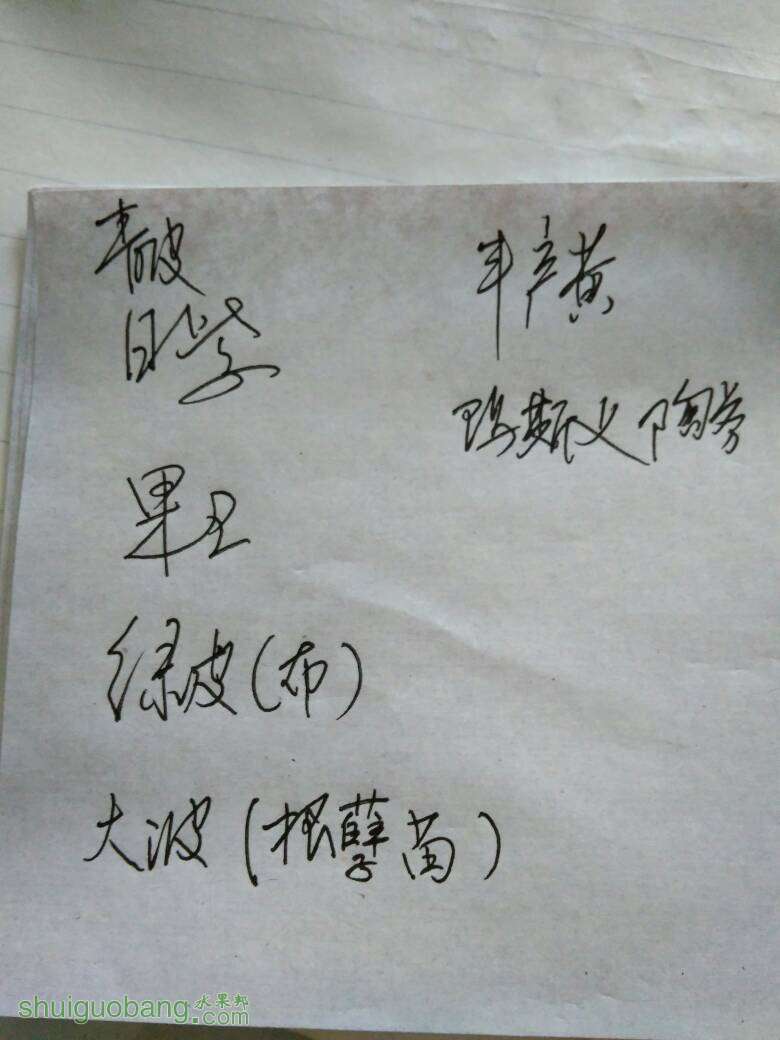 青皮
日紫
丰产黄
玛斯义陶芬
果王
绿皮(布)
大波(根孽苗)
shuiguobang.com
水果邦